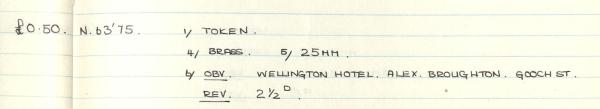 £0.50. N.63'75. 1/ TOKEN.
4/ BRASS. 5/ 25MM.
6/ OBV. WELLINGTON HOTEL. ALEX. BROUGHTON. GOOCH ST.
REV. 2½D